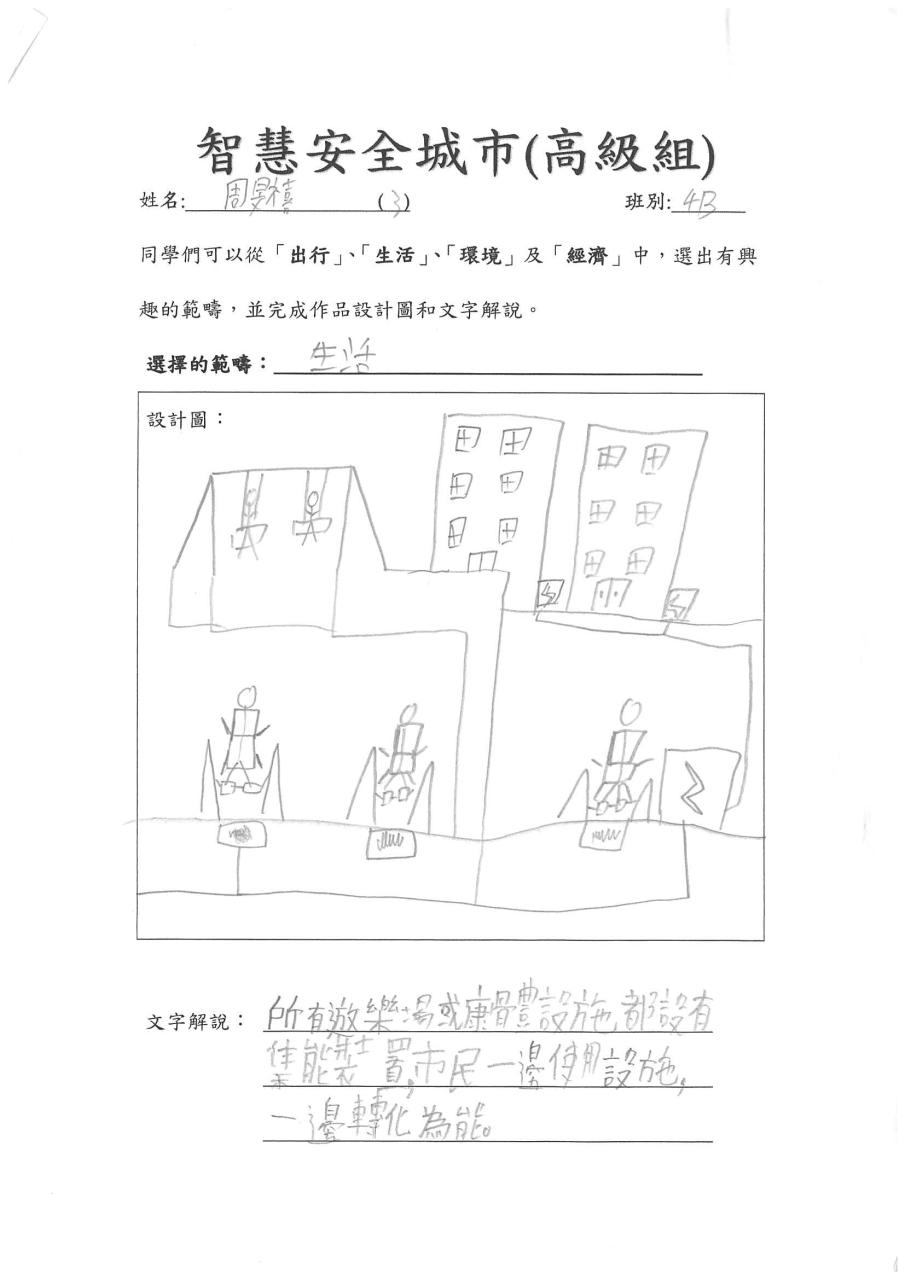 智慧安全城市(高級組)
姓名: 周旻禧 (3) 班別: 4B
同學們可以從「出行」、「生活」、「環境」及「經濟」中，選出有興
趣的範疇，並完成作品設計圖和文字解說。
選擇的範疇： 生活
設計圖：
文字解說： 所有遊樂場或康體設施都設有
集能裝置,市民一邊使用設施,
一邊轉化為能。